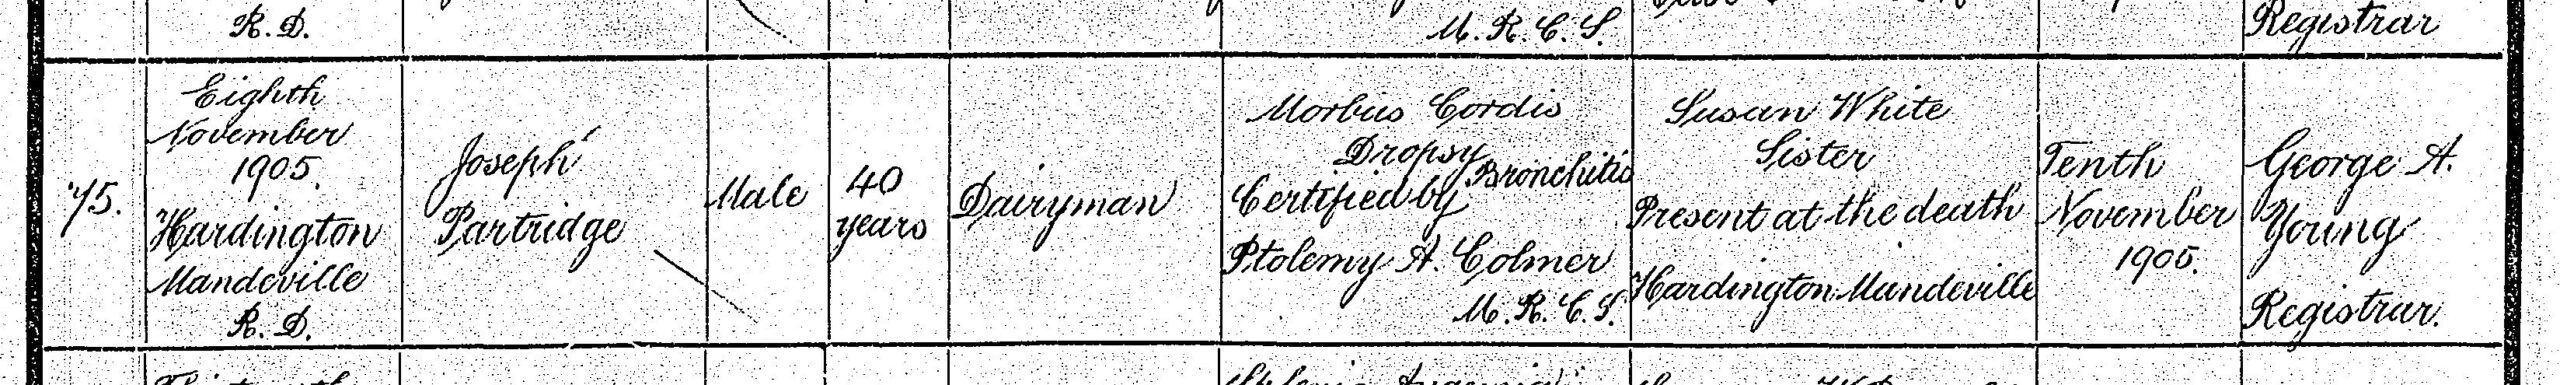 R. D.
M. R. C. S.
Registrar
75.
Eighth
November
1905.
Hardington
Mandeville
R. D.
Joseph
Partridge
Male
40
years
Dairyman
Morbus Cordis
Dropsy
Bronchitis
Certified by
Ptolemy A. Colmer
M. R. C. S.
Susan White
Sister
Present at the death
Hardington Mandeville
Tenth
November
1905.
George A.
Young
Registrar.